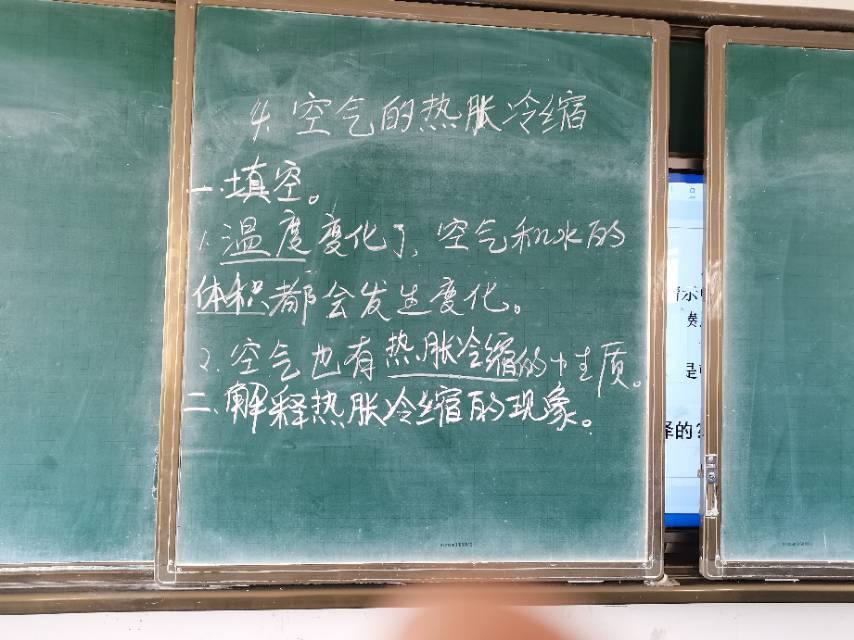 4. 空气的热胀冷缩
一.填空。
1.温度变化了,空气和水的
体积都会发生变化。
2.空气也有热胀冷缩的性质。
二.解释热胀冷缩的现象。
是
释的?